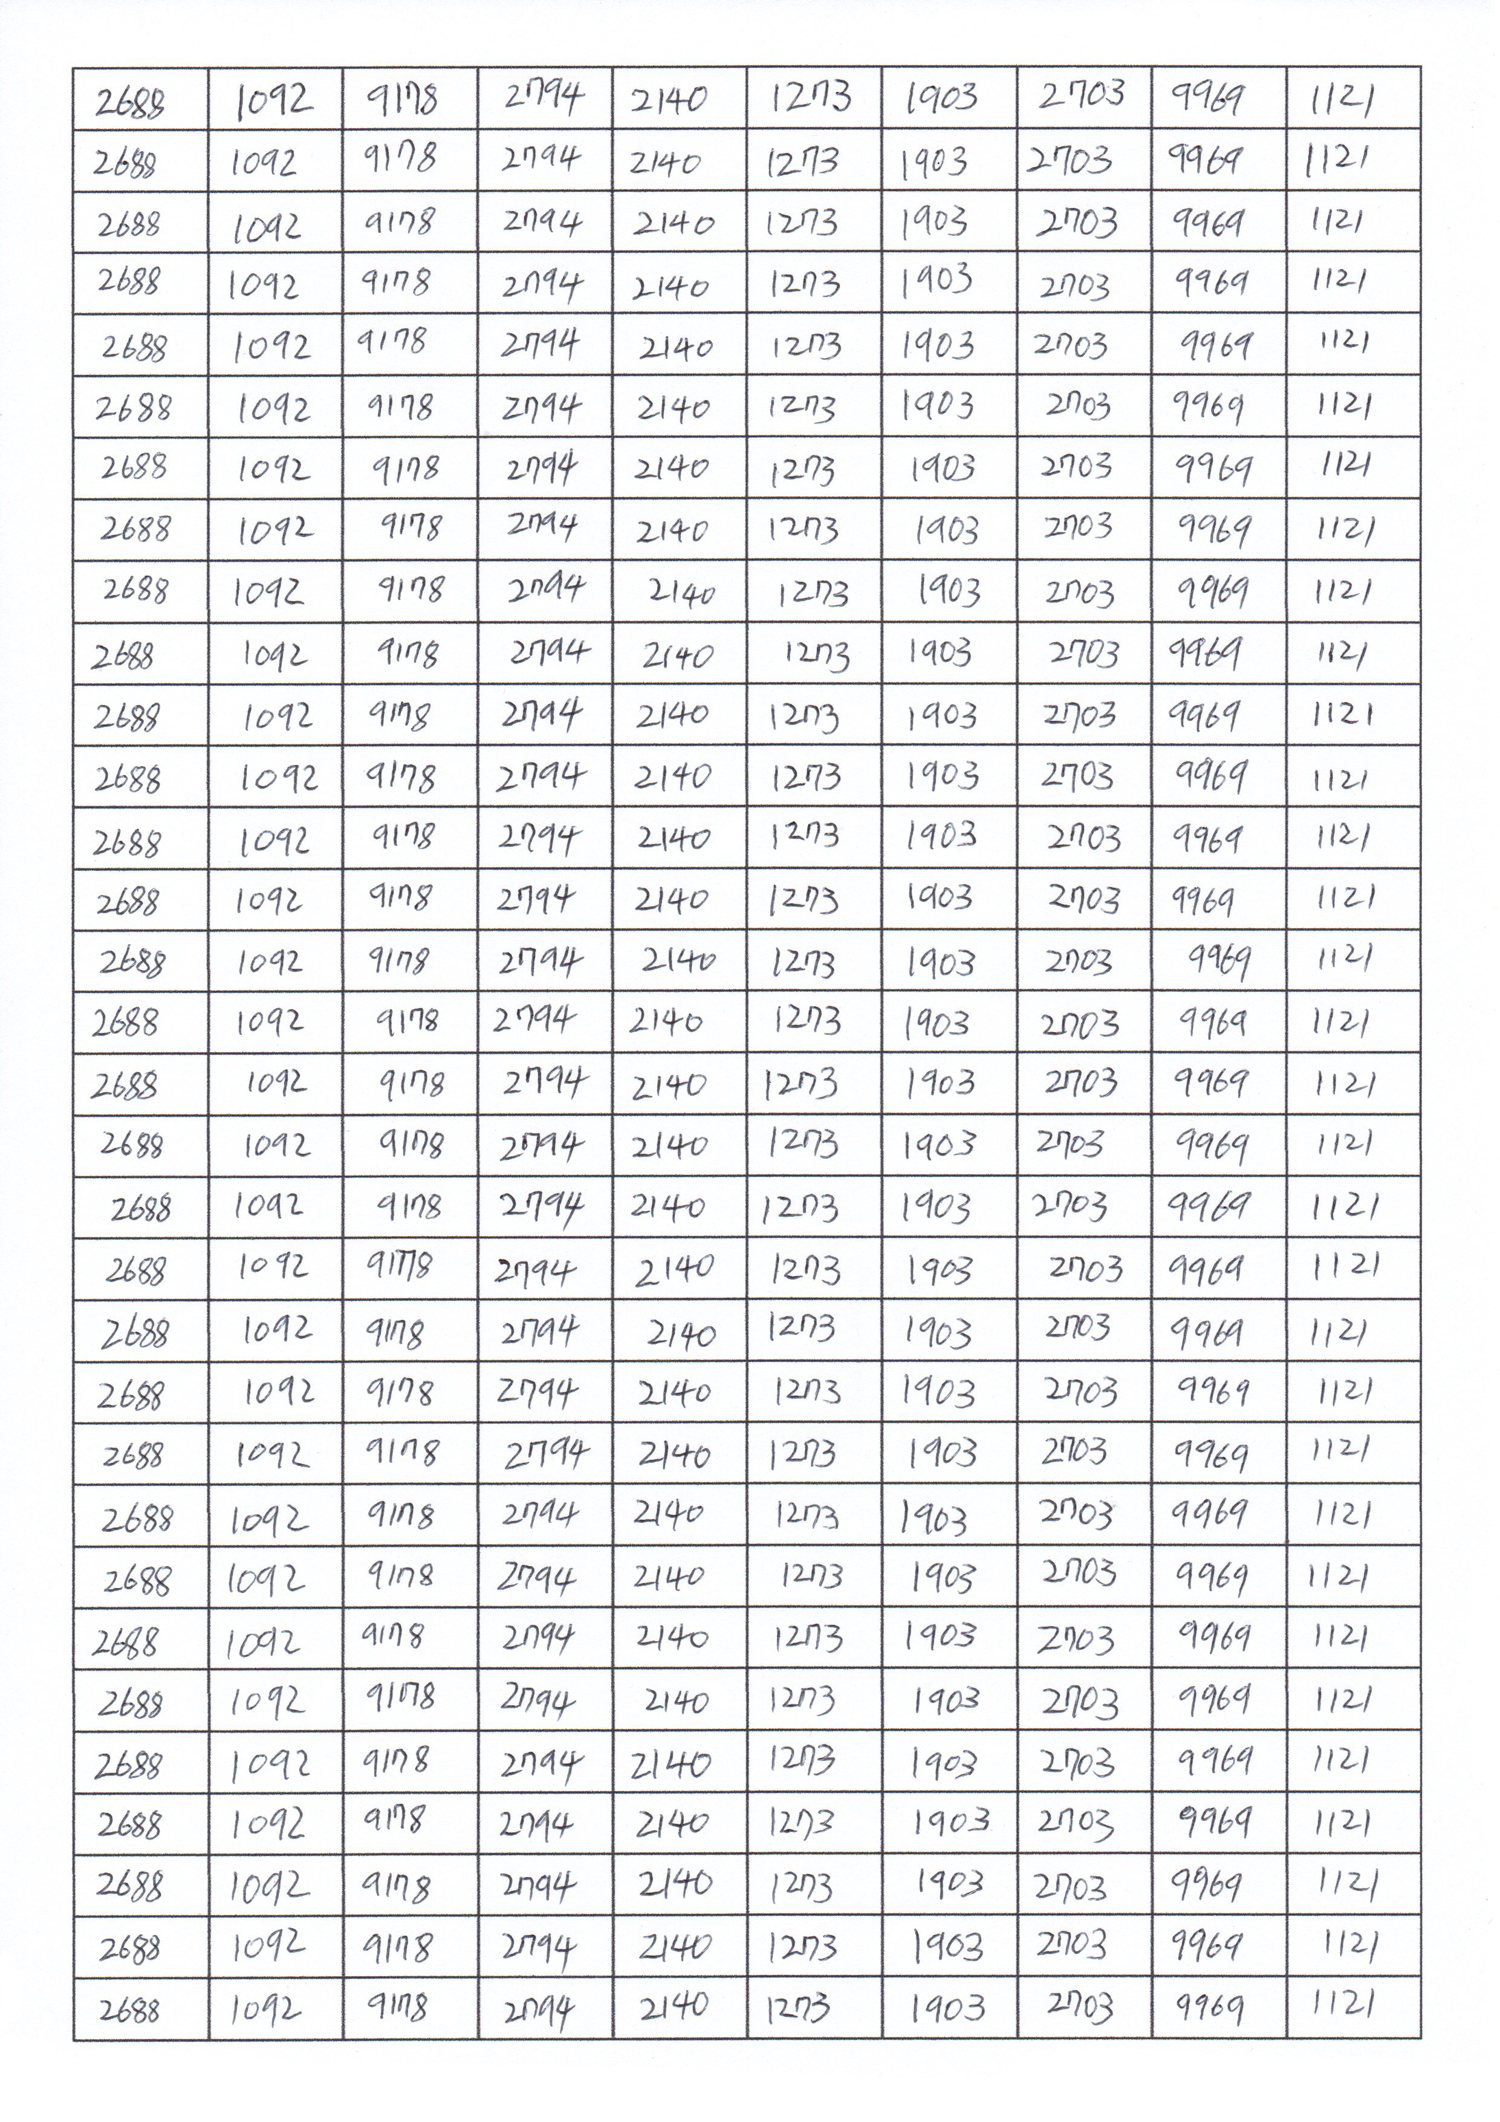 2688 1092 9178 2794 2140 1273 1903 2703 9969 1121
2688 1092 9178 2794 2140 1273 1903 2703 9969 1121
2688 1092 9178 2794 2140 1273 1903 2703 9969 1121
2688 1092 9178 2794 2140 1273 1903 2703 9969 1121
2688 1092 9178 2794 2140 1273 1903 2703 9969 1121
2688 1092 9178 2794 2140 1273 1903 2703 9969 1121
2688 1092 9178 2794 2140 1273 1903 2703 9969 1121
2688 1092 9178 2794 2140 1273 1903 2703 9969 1121
2688 1092 9178 2794 2140 1273 1903 2703 9969 1121
2688 1092 9178 2794 2140 1273 1903 2703 9969 1121
2688 1092 9178 2794 2140 1273 1903 2703 9969 1121
2688 1092 9178 2794 2140 1273 1903 2703 9969 1121
2688 1092 9178 2794 2140 1273 1903 2703 9969 1121
2688 1092 9178 2794 2140 1273 1903 2703 9969 1121
2688 1092 9178 2794 2140 1273 1903 2703 9969 1121
2688 1092 9178 2794 2140 1273 1903 2703 9969 1121
2688 1092 9178 2794 2140 1273 1903 2703 9969 1121
2688 1092 9178 2794 2140 1273 1903 2703 9969 1121
2688 1092 9178 2794 2140 1273 1903 2703 9969 1121
2688 1092 9178 2794 2140 1273 1903 2703 9969 1121
2688 1092 9178 2794 2140 1273 1903 2703 9969 1121
2688 1092 9178 2794 2140 1273 1903 2703 9969 1121
2688 1092 9178 2794 2140 1273 1903 2703 9969 1121
2688 1092 9178 2794 2140 1273 1903 2703 9969 1121
2688 1092 9178 2794 2140 1273 1903 2703 9969 1121
2688 1092 9178 2794 2140 1273 1903 2703 9969 1121
2688 1092 9178 2794 2140 1273 1903 2703 9969 1121
2688 1092 9178 2794 2140 1273 1903 2703 9969 1121
2688 1092 9178 2794 2140 1273 1903 2703 9969 1121
2688 1092 9178 2794 2140 1273 1903 2703 9969 1121
2688 1092 9178 2794 2140 1273 1903 2703 9969 1121
2688 1092 9178 2794 2140 1273 1903 2703 9969 1121